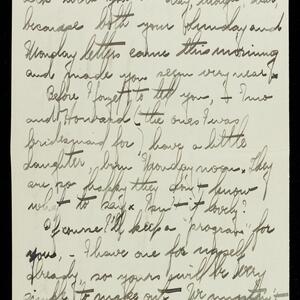 because both your Sunday and
Monday letters came this morning
and made you seem very near.
Before I forget to tell you, – Imo
and Howard (the ones I was
bridesmaid for) have a little
daughter born Monday noon. They
are so happy they don't know
what to say. Isn't it lovely?
Of course I'll keep a "program" for
you, – I have one for myself
already, so yours will be very
simple to make out. We